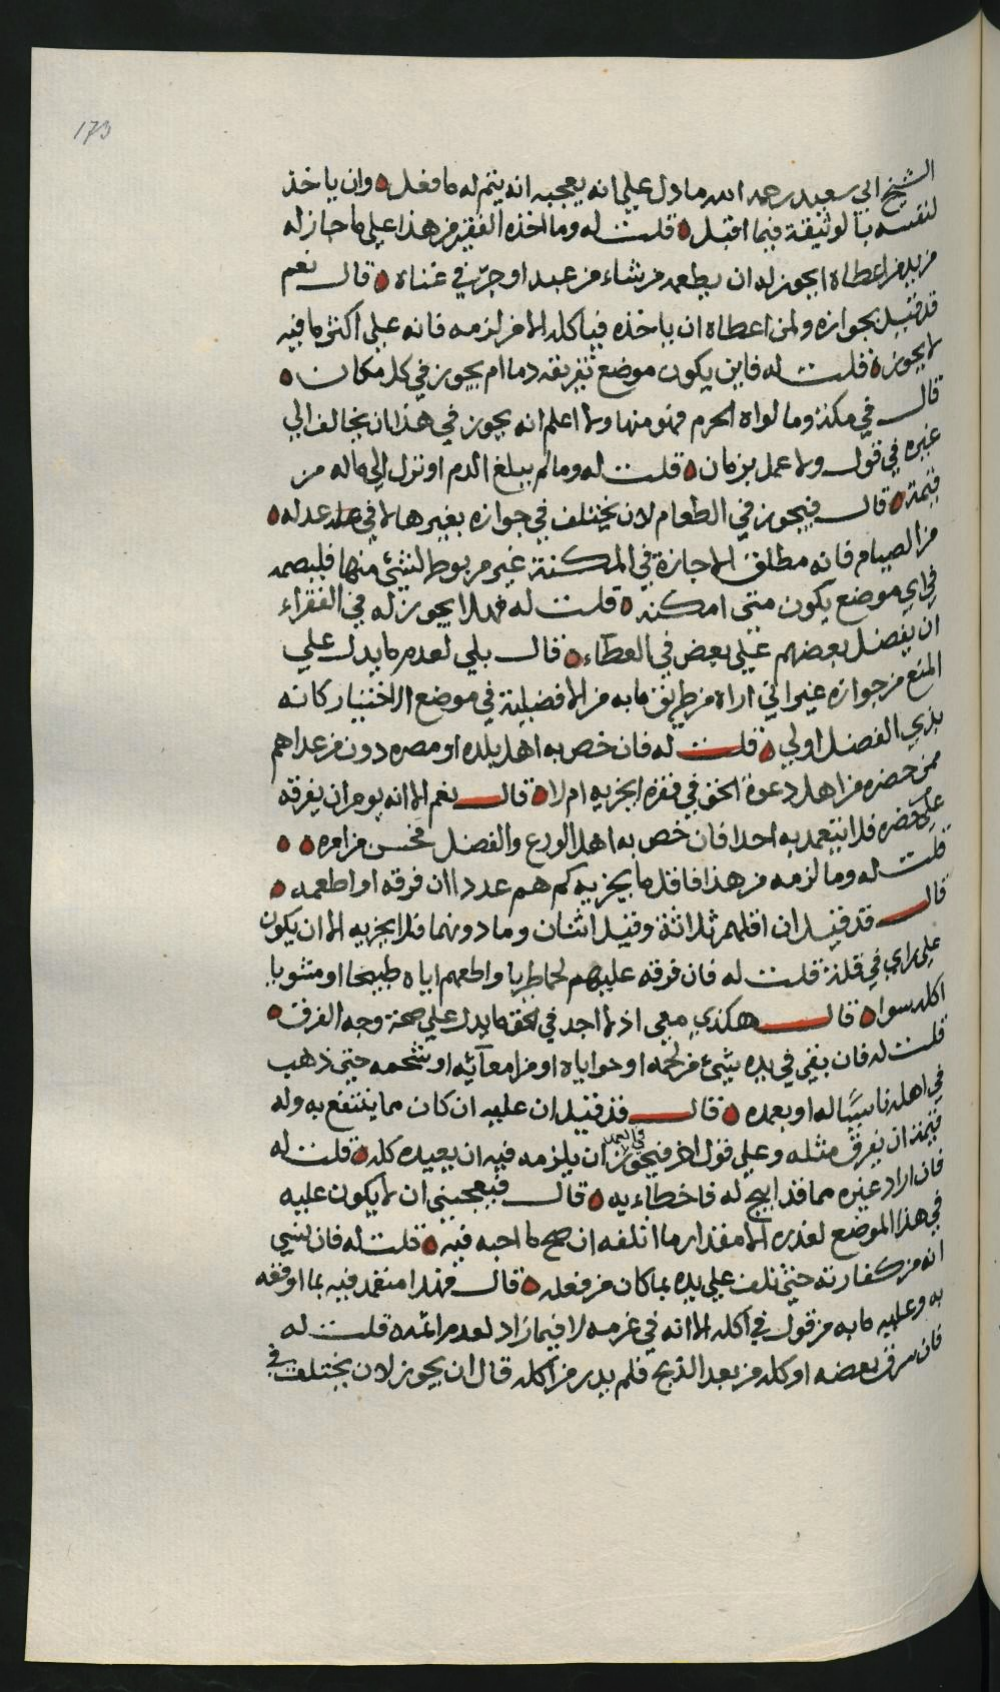 173
الشيخ ابي سعيد رحمه الله ما دل علي انه يعجبه انه يتم له ما فعل وان ياخذ
لنفسه بالوثيقة فيما اقبل قلت له وما اخذه الفقير من هذا علي ما جاز له
من يد من اعطاه ايجوز له ان يطعمه من شاء من عبد او حر في غناه قال نعم
قد قيل بجوازه ولمن اعطاه ان ياخذه فياكله الا من لزمه فانه علي اكثر ما فيه
لا يجوز قلت له فاين يكون موضع تفريقه دما ام يجوز في كل مكان
قال في مكة وما لواه الحرم فهو منها ولا اعلم انه يجوز في هذا ان يخالف الي
غيره في قول ولا عمل بزمان قلت له وما لم يبلغ الدم او نزل الي ماله من
قيمة قال فيجوز في الطعام لان يختلف في جوازه بغيرها لا في عدله
من الصيام فانه مطلق الاجازة في المكنة غير مربوط لشئ منها فليصمه
في اي موضع يكون متي امكنه قلت له فهلا يجوز له في الفقراء
ان يفضل بعضهم علي بعض في العطاء قال بلي لعدم ما يدل علي
المنع من جوازه غير اني اراه من طريق ما به من الافضلية في موضع الاختيار كانه
بذي الفضل اولي قلت له فان خص به اهل بلده او مصره دون من عداهم
ممن حضره من اهل دعوة الحق في فقره ايجزيه ام لا قال نعم الا انه يومر ان يفرقه
علي من حضره فلا يتعمد به احدا فان خص به اهل الورع والفضل فحسن من امره
قلت له وما لزمه من هذا فاقل ما يجزيه كم هم عددا ان فرقه او اطعمه
قال قد قيل ان اقلهم ثلاثة وقيل اثنان وما دونهما فلا يجزيه الا ان يكون
علي راي في قلة قلت له فان فرقه عليهم لحما طريا واطعمهم اياه طبيخا او مشويا
اكله سواه قال هكذي معي اذ لا اجد في لحقه ما يدل علي صحة وجه الفرق
قلت له فان بقي في يده شئ من لحمه او حواياه او من امعائه او شحمه حتي ذهب
في اهله ناسيا له او بعمده قال قد قيل ان عليه ان كان مما ينتفع به وله
قيمة ان يفرق مثله وعلي قول اخر فيجوز في العمد ان يلزمه فيه ان يعيده كله قلت له
فان اراد غيره مما قد ابيح له فاخطاء به قال فيعجبني ان لا يكون عليه
في هذا الموضع لعذره الا مقدار ما اتلفه ان صح ما احبه فيه قلت له فان نسي
انه من كفارته حتي تلف علي يده بما كان من فعله قال فهذا متقدم فيه بما اوقعه
به وعليه ما به من قول في اكله الا انه في غرمه لا فيما زاد لعدم اثمه قلت له
فان سرق بعضه او كله من بعد الذبح فلم يدر من اكله قال ان يجوز لان يختلف في